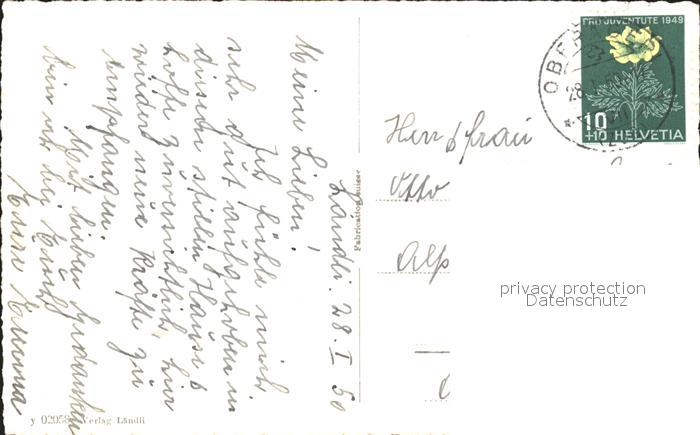 Ländli. 28. I 50
Meine Lieben!
Ich fühle mich
sehr gut aufgehoben in
diesem stillen Hause &
hoffe zuversichtlich, hier
wieder neue Kräfte zu
empfangen.
Mit lieben Gedanken
bin ich bei Euch
Eure Emma
Fabrication Suisse
y 02058 Verlag Ländli
Herr & frau
Otto
Alp
PRO JUVENTUTE 1949
10
+10 HELVETIA
OBER
28. I.
privacy protection
Datenschutz